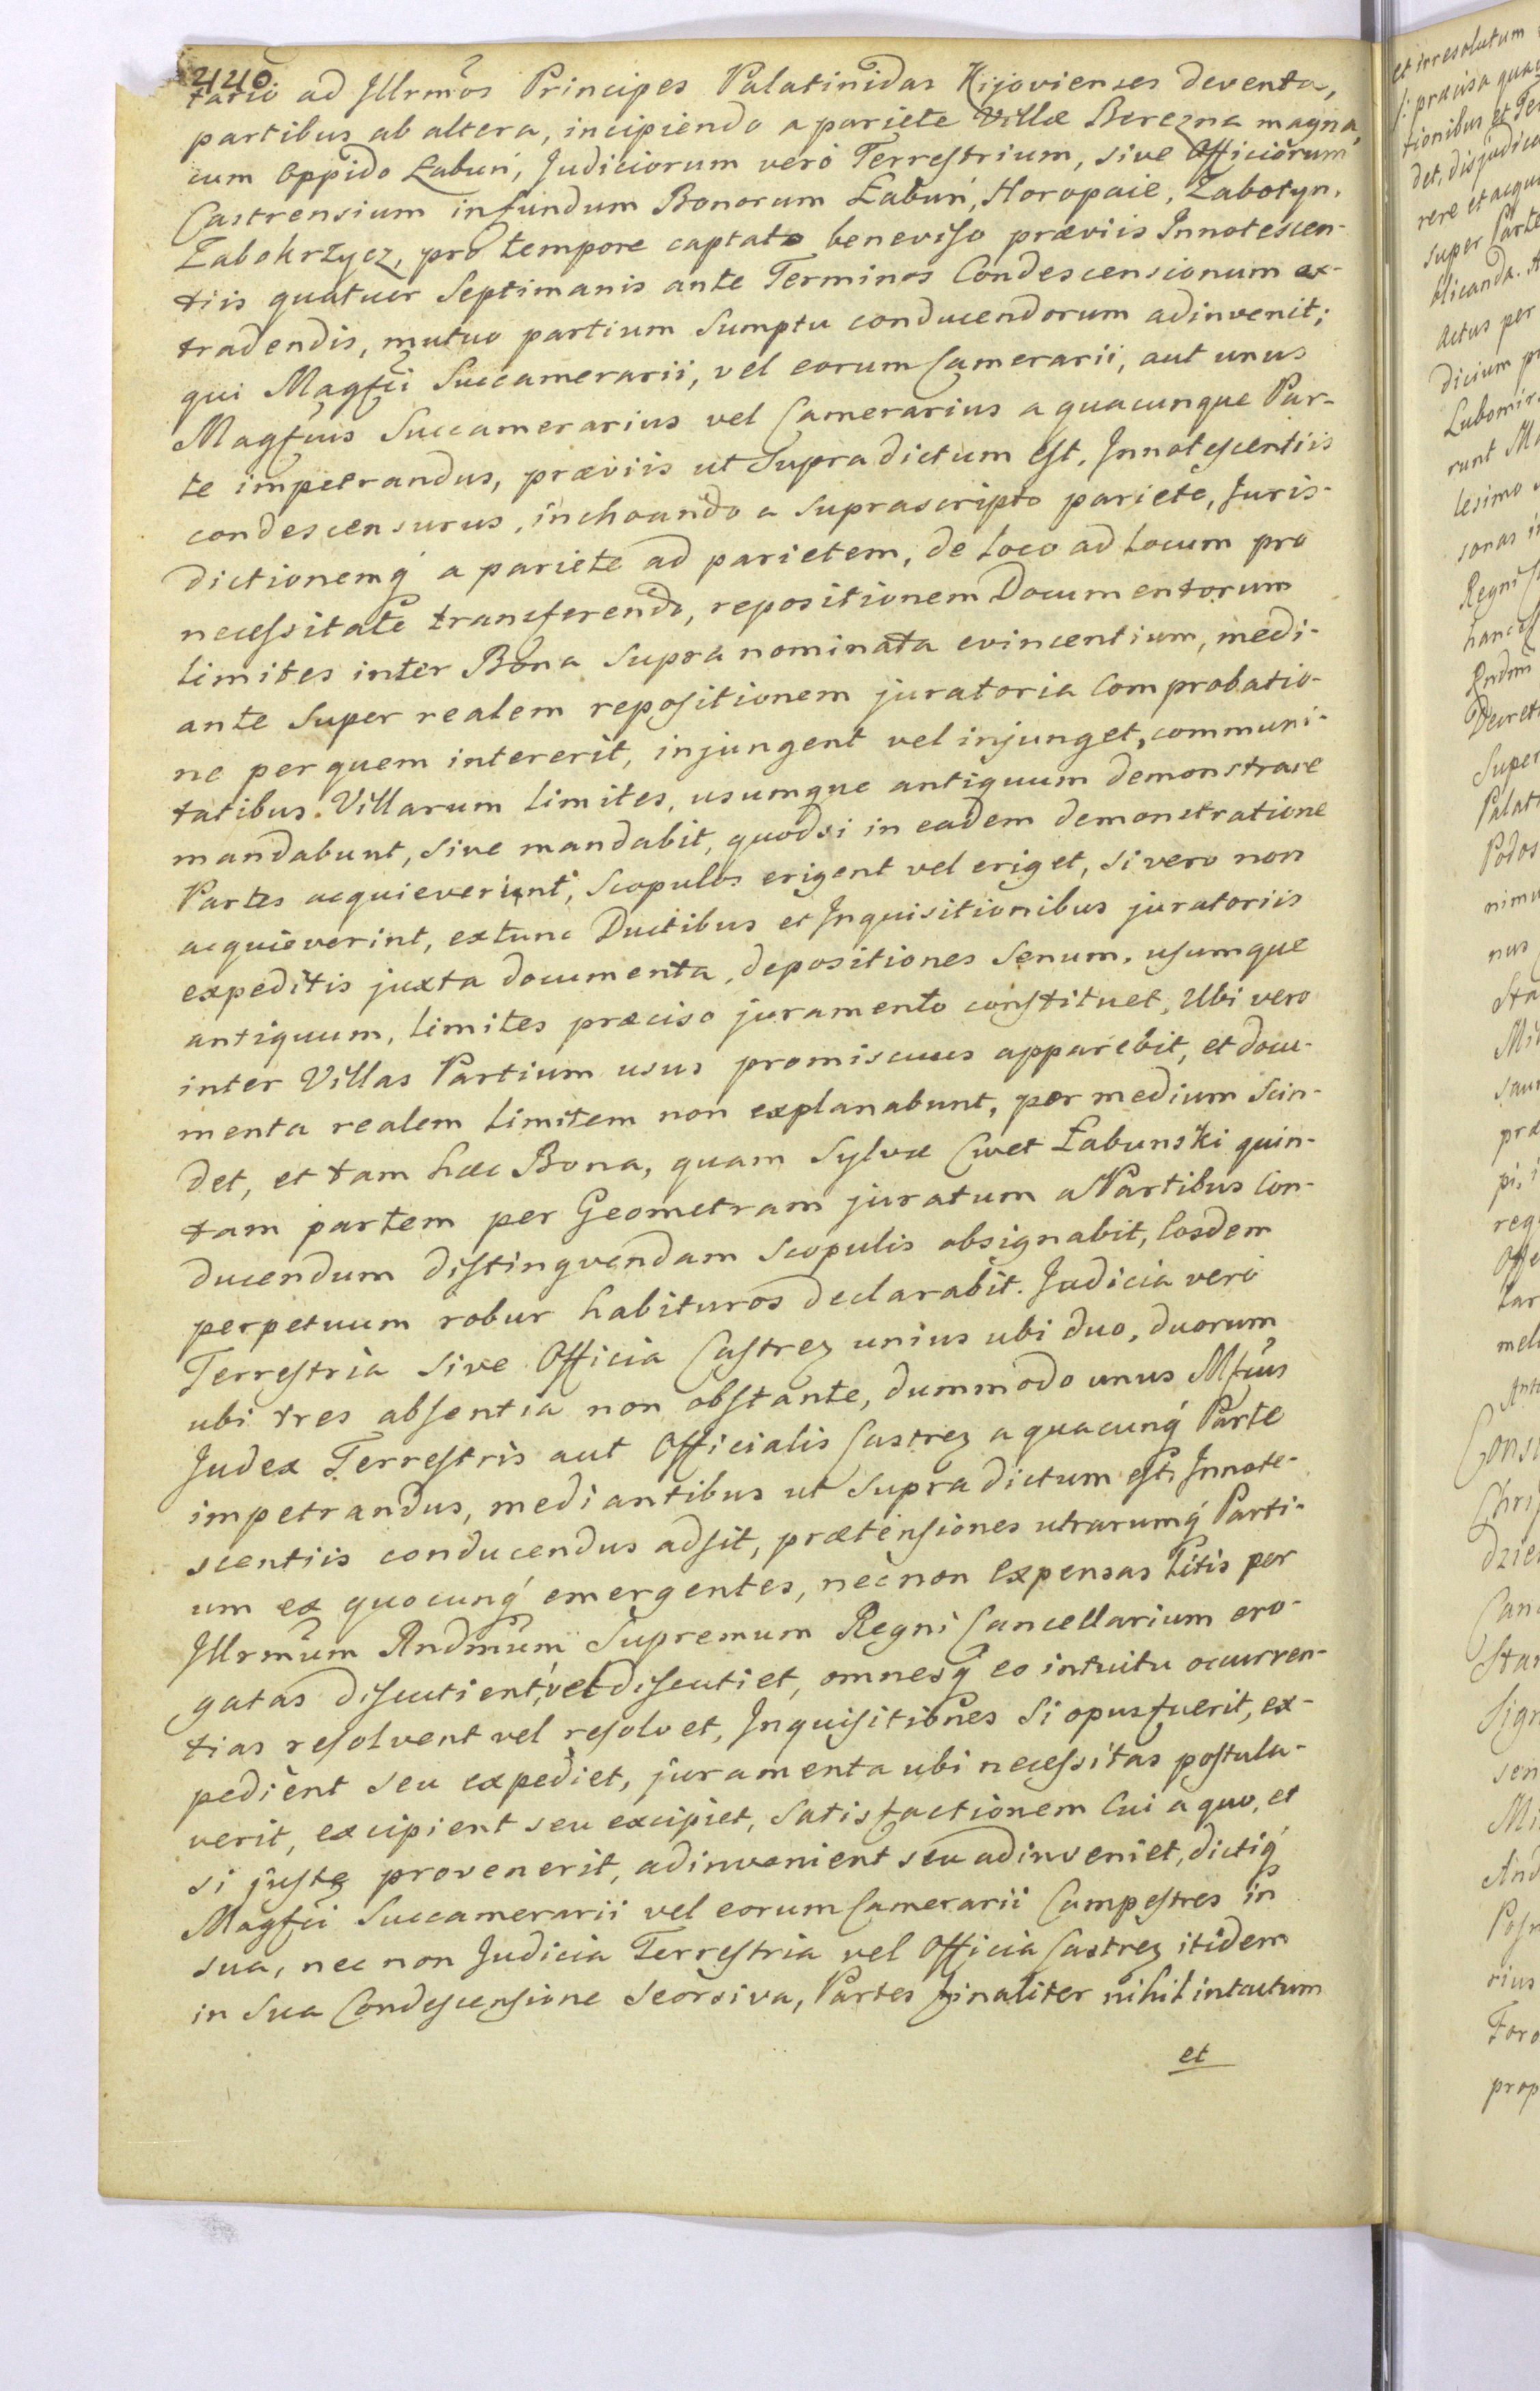 440.
tario ad Illrmos Principes Palatinidas Kijovienses deventa,
partibus ab altera, incipiendo a pariete Villæ Berezna magna,
cum Oppido Łabuń, Judiciorum verò Terrestrium, sive Officiorum
Castrensium in fundum Bonorum Łabuń, Horopaie, Zabotyn,
Zabokrzycz, pro tempore captato beneviso præviis Innotescen-
tiis quatuor Septimanis ante Terminos Condescensionum ex-
tradendis, mutuo partium Sumptu conducendorum adinvenit;
qui Magfci Succamerarii, vel eorum Camerarii, aut unus
Magfcus Succamerarius vel Camerarius a quacunque Par-
te impetrandus, præviis ut Supra dictum est, Innotescentiis
condescensurus, inchoando a suprascripto pariete, Juris-
dictionemq́ a pariete ad parietem, de loco ad locum pro
necessitate transferendo, repositionem Documentorum
limites inter Bona Supra nominata evincentium, medi-
ante super realem repositionem juratoria comprobatio-
ne per quem intererit, injungent vel injunget, communi-
tatibus Villarum limites, usumque antiquum demonstrare
mandabunt, sive mandabit, quodsi in eadem demonstratione
Partes acquieverint, Scopulos erigent vel eriget, si vero non
acquieverint, extunc Ductibus et Inquisitionibus juratoriis
expeditis juxta documenta, depositiones Senum, usumque
antiquum, limites præciso juramento constituet, Ubi vero
inter Villas Partium usus promiscuus apparebit, et docu-
menta realem limitem non explanabunt, per medium scin-
det, et tam hæc Bona, quam Sylvæ Cwet Łabunski quin-
tam partem per Geometram juratum a Partibus con-
ducendum distinguendam Scopulis absignabit, Eosdem
perpetuum robur habituros declarabit. Judicia verò
Terrestria sive Officia Castrez unius ubi duo, duorum
ubi tres absentia non obstante, dummodo unus Mfcus
Judex Terrestris aut Officialis Castrez a quacunq́ Parte
impetrandus, mediantibus ut Supra dictum est, Innote-
scentiis conducendus adsit, prætensiones utrarumq́ Parti-
um ex quocunq́ emergentes, necnon Expensas Litis per
Illrmum Rndmum Supremum Regni Cancellarium ero-
gatas discutient, vel discutiet, omnesq́ eo intuitu ocurren-
tias resolvent vel resolvet, Inquisitiones si opus fuerit, ex-
pedient seu expediet, juramenta ubi necessitas postula-
verit, excipient seu excipiet, Satisfactionem Cui a quo, et
si juste provenerit, adinvenient seu adinveniet, dictiq́
Magfci Succamerarii vel eorum Camerarii Campestres in
sua, nec non Judicia Terrestria vel Officia Castrez itidem
in sua Condescensione Seorsiva, Partes finaliter nihil intactum
et